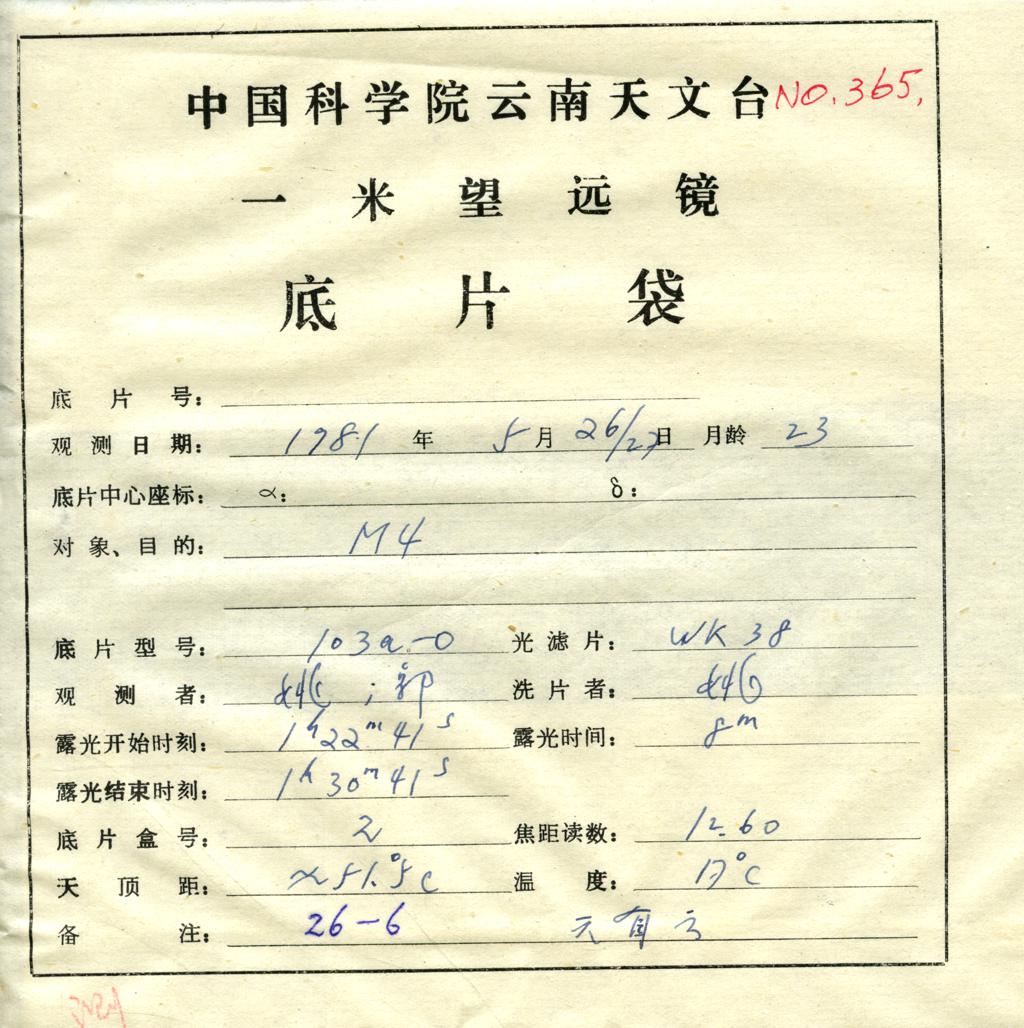 中国科学院云南天文台 NO.365,
一米望远镜
底片袋
底片号:
观测日期: 1981 年 5 月 26/27 日 月龄 23
底片中心座标: α: δ:
对象、目的: M4
底片型号: 103a-O 光滤片: WK 38
观测者: ;郭 洗片者:
露光开始时刻: 1h22m41s 露光时间: 8m
露光结束时刻: 1h30m41s
底片盒号: 2 焦距读数: 12.60
天顶距: 温度: 17°C
备注: 26-6 有云